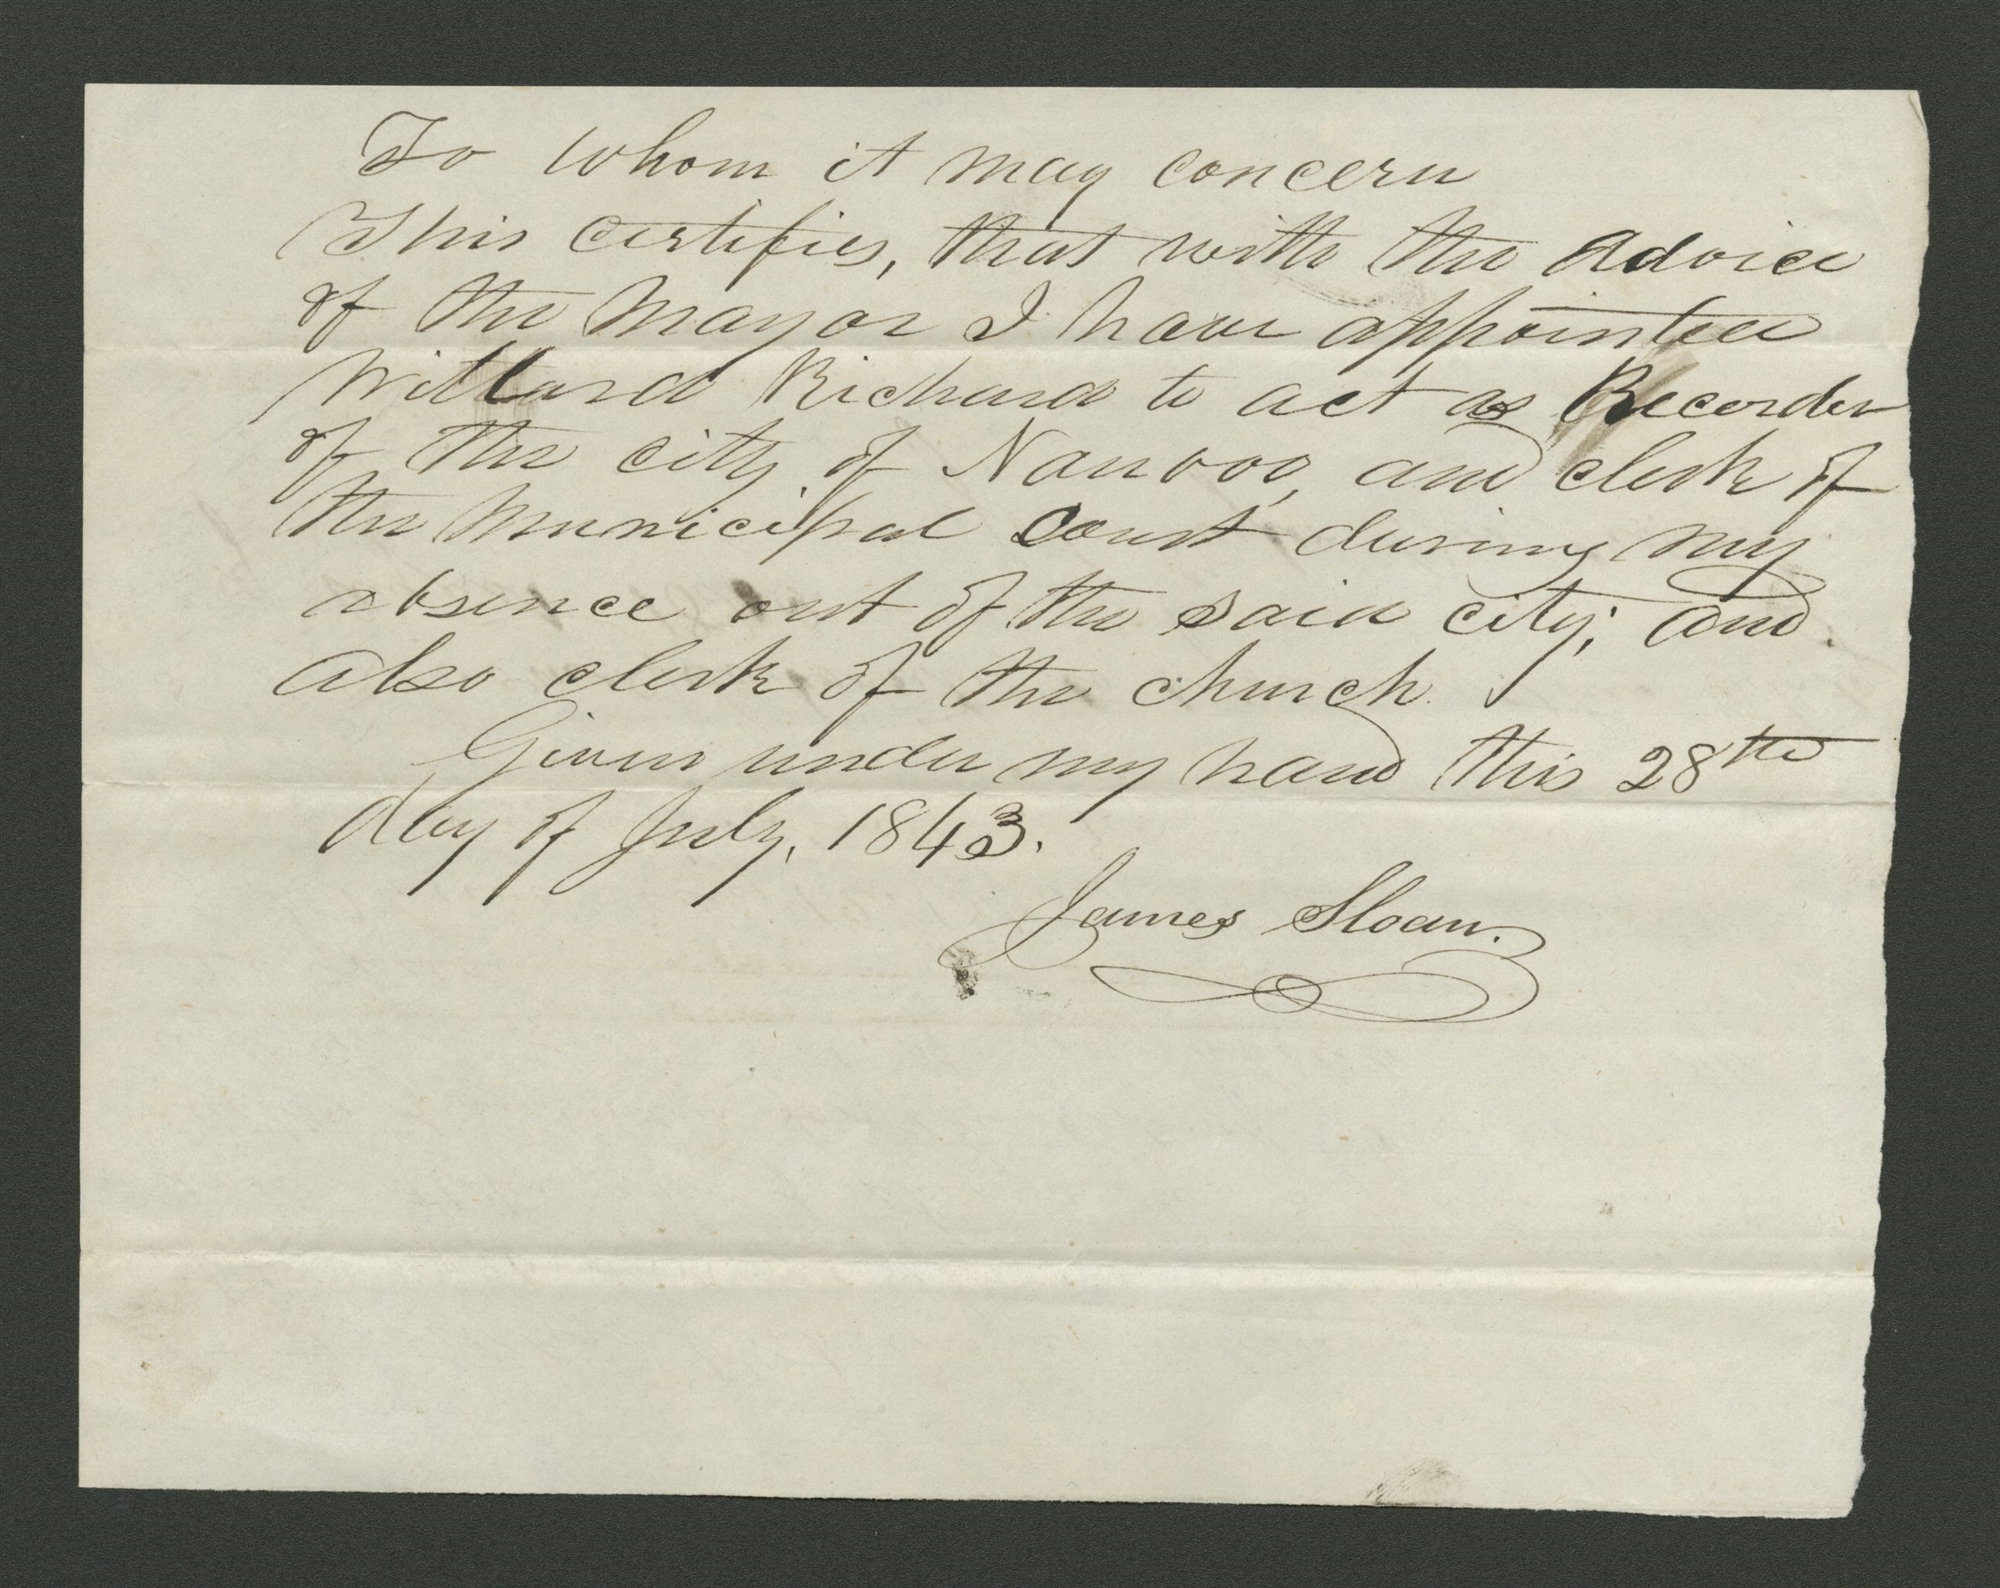 To whom it may concern
This certifies, that with the Advice
of the Mayor I have appointed
Willard Richard to act as Recorder
of the city of Nauvoo, and clerk of
the Municipal Court during my
absence out of the said city; and
also clerk of the church.
Given under my hand this 28th
day of July, 1843.
James Sloan.